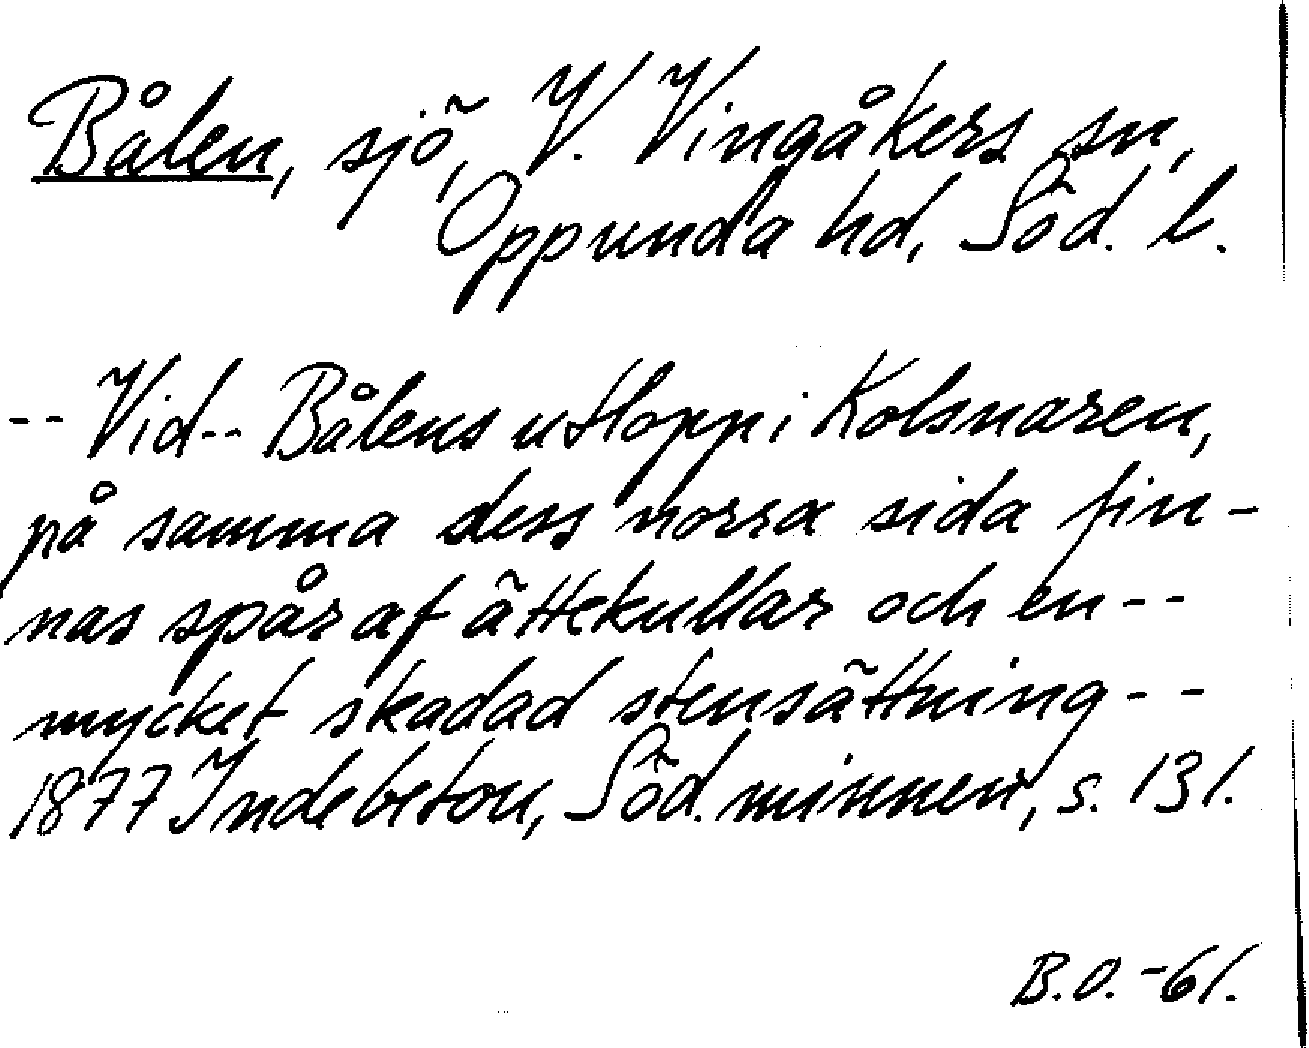 Bålen, sjö, V. Vingåkers sn,
Oppunda hd, Söd. l.
-- Vid -- Bålens utlopp i Kolsnaren,
på samma dess norra sida fin-
nas spår af ättekullar och en --
mycket skadad stensättning --
1877 Indebetou, Söd. minnen, s. 131.
B.O. -61.